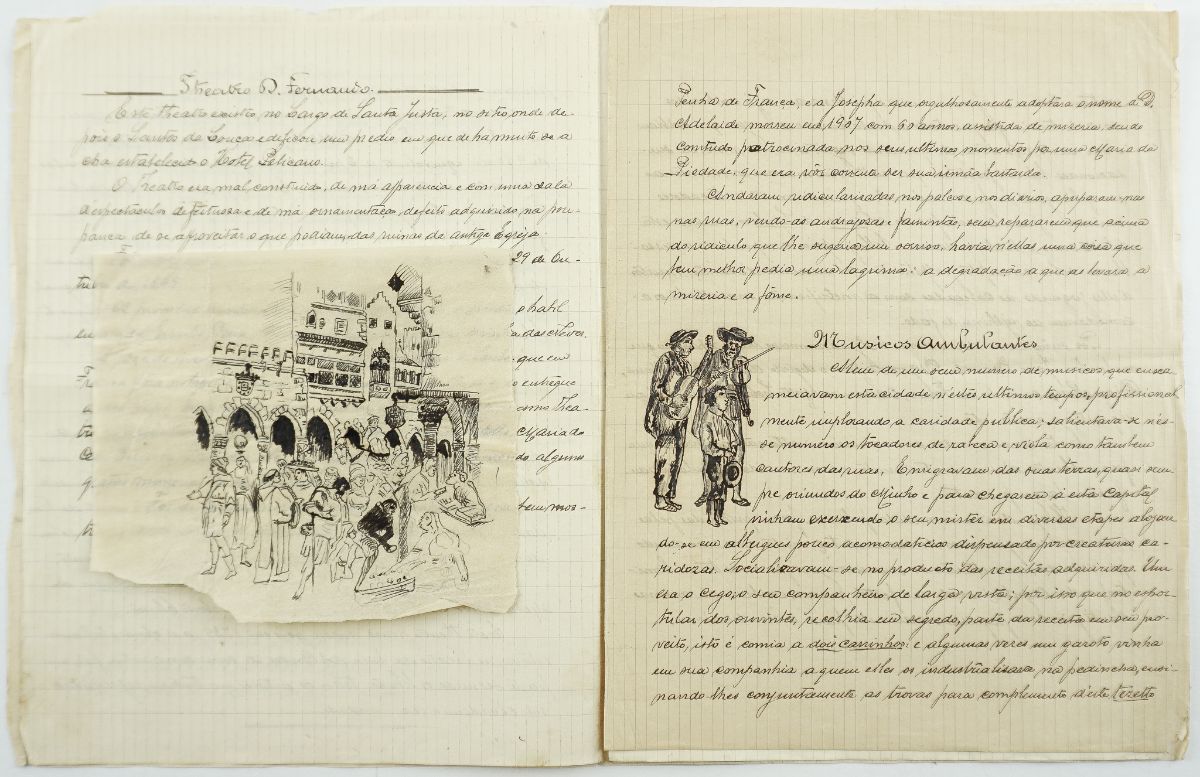 Theatro D. Fernando.
Este theatro existiu no Largo de Santa Justa, no sitio onde de-
pois o Santos de Souza edificou um predio em que de ha muito se a-
cha estabelecido o Hotel Pelicano.
O Theatro era mal construido, de má apparencia e com uma sala
d'espectaculos defeituosa e de má ornamentação, defeito adquirido na pou-
pança de se aproveitar o que podiam, das ruinas da antiga Egreja.
29 de Ou-
tubro de
o habil
que em
o entregue
como Thea-
Maria do
do alguns
bem mos-
Penha de França, e a Josepha que orgulhosamente adoptara o nome de D.
Adelaide morreu em 1907 com 60 annos, assistida de mizeria, sendo
comtudo patrocinada, nos seus ultimos momentos por uma Maria da
Piedade, que era vóz corrente ser sua irmãa bastarda.
Andaram ridicularisadas nos palcos e nos diarios, apuparam-nas
nas ruas, vendo-as andrajosas e famintas, sem repararem que acima
do ridiculo que lhe jogaram um sorriso, havia n'ellas uma coisa que
bem melhor pedia uma lagrima: a degradação a que as levara a
mizeria e a fôme.
Musicos Ambulantes
Alem de um sem numero de musicos que enxa-
meiavam esta cidade n'estes ultimos tempos, profissional
mente, implorando a caridade publica; salientava-se nes-
se numero os tocadores de rabeca e viola como tambem
cantores das ruas. Emigravam das suas terras, quasi sem-
pre oriundos do Minho e para chegarem á esta Capital
vinham exercendo o seu mister em diversas etapes alojan-
do-se em albergues pouco acomodaticios dispensado por creaturas ca-
ridozas. Socializavam-se no producto das receitas adquiridas. Um
era o cego, o seu companheiro de larga vista; por isso que no esbor-
tular dos ouvintes, recolhia em segredo, parte da receita em seu pro-
veito, isto é comia a dois carrinhos: e algumas vezes um garoto vinha
em sua companhia a quem elles os industrialisava na pedincha, ensi-
nando-lhes conjuntamente as trovas para complemento d'este terzetto